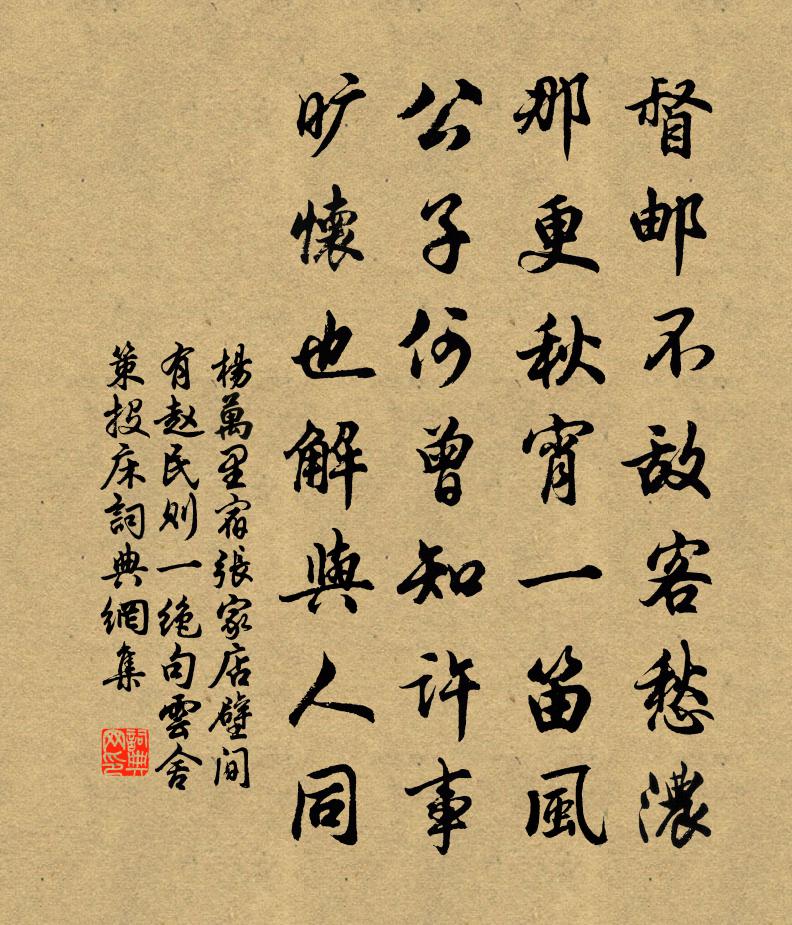 督邮不敌客愁濃
那更秋宵一笛風
公子何曾知許事
旷懷也解與人同
楊萬里宿張家店壁间
有赵民则一绝句雲舍
策投床詞典網集
詞典網印